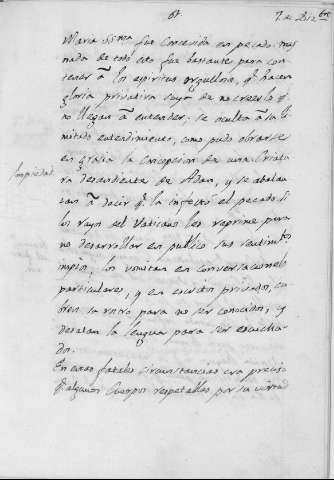 67. 7. de Diz.bre
Maria SSma. fue Concevida sin pecado: mas
nada de todo esto fue bastante para con-
tener â los espiritus orgullosos, q.e hacen
gloria privativa suya de no creer lo q.e
no llegan â entender: se oculta â su li-
mitado entendimiento, como pudo obrarse
en gracia la Concepcion de una Criatu
Impiedad.
ra descendiente de Adan, y se abalan
zan â decir q.e la infectó el pecado. Si
los rayos del Vaticano les reprime para
no desarrollar en publico sus sentim.tos
impios, los vomitan en conversaciones
particulares, y en escritos privados, cu-
bren su rostro para no ser conocidos, y
desatan la lengua para ser escucha-
dos.
En estas fatales circunstancias era preciso
q.e algunos Cuerpos respetables por su virtud